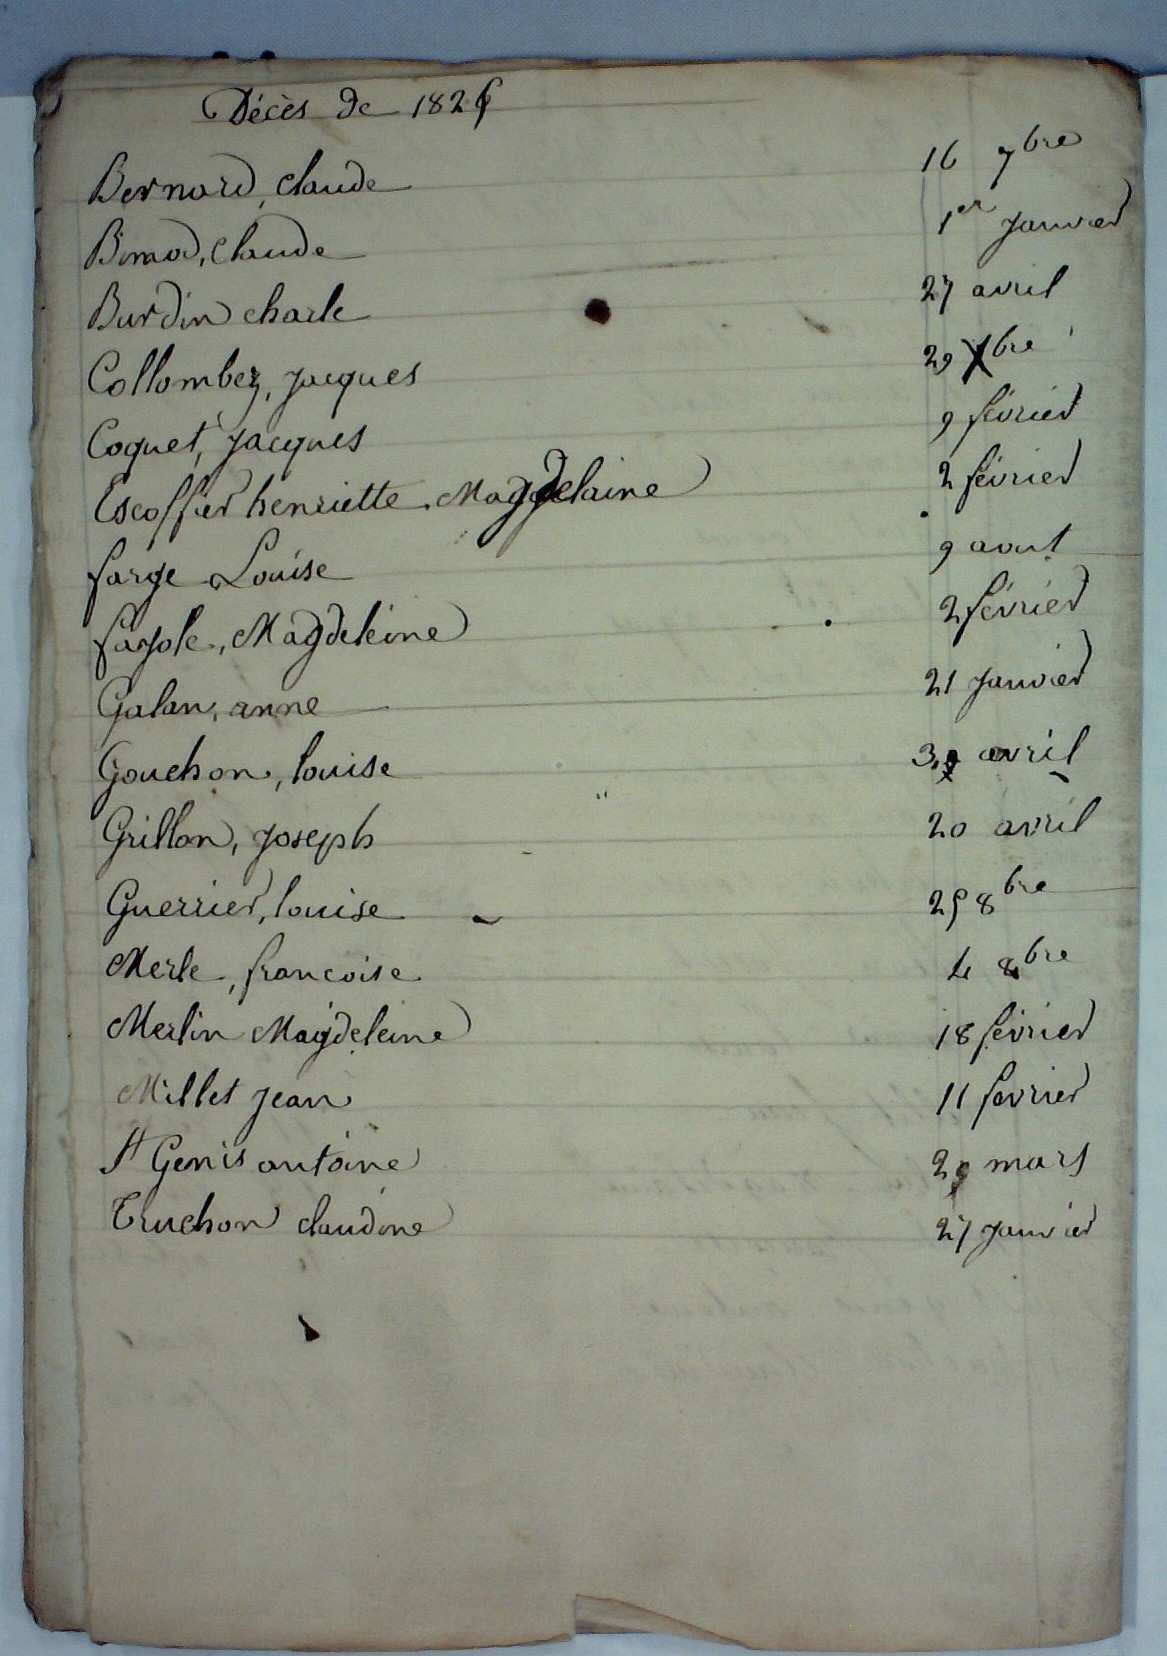 Décès de 1826
Bernard, Claude 16 7bre
Bimod, Claude 1er Janvier
Burdin charle 27 avril
Collombez, Jacques 29 Xbre
Coquet, Jacques 9 février
Escoffier henriette Magdelaine 2 février
farge Louise 9 aout
fayole, Magdeleine 2 février
Galan, anne 21 Janvier
Gouchon, louise avril
Grillon, Joseph 20 avril
Guerrier, louise 25 8bre
Merle, francoise 4 8bre
Merlin Magdeleine 18 février
Millet Jean 11 fevrier
St Genis antoine 29 mars
Truchon claudine 27 Janvier